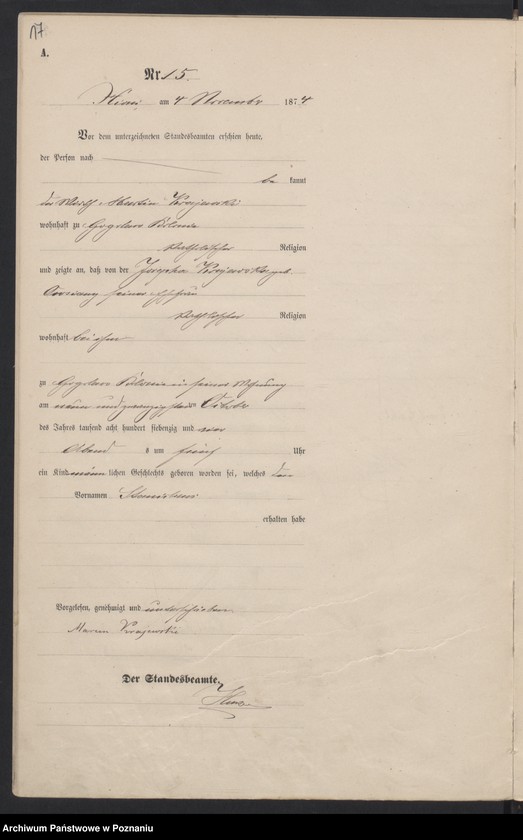 17
A.
Nr 15.
Xions am 4 November 1874
Vor dem unterzeichneten Standesbeamten erschien heute,
der Person nach
be kannt
der Wirth Martin Krajewski
wohnhaft zu
katholischer Religion
und zeigte an, daß von der Josepha Krajewska geb.
seiner Ehefrau
katholischer Religion
wohnhaft bei ihm
zu in seiner Wohnung
am neun und zwanzigsten October
des Jahres tausend acht hundert siebenzig und vier
Abend s um fünf Uhr
ein Kind männ lichen Geschlechts geboren worden sei, welches den
Vornamen Stanislaus
erhalten habe
Vorgelesen, genehmigt und unterschrieben
Marcin Krajewski
Der Standesbeamte.
Archiwum Państwowe w Poznaniu